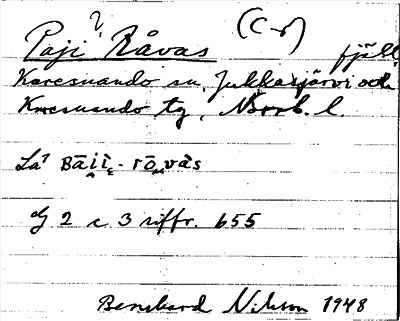 ? (C-5)
Paji Råvas fjäll
Karesuando sn, Jukkasjärvi och
Karesuando tg, Norrb. l.
La' Bāi̯i̯- rō̬vàs
G 2 c 3 siffr. 655
Bernhard Nilsson 1948